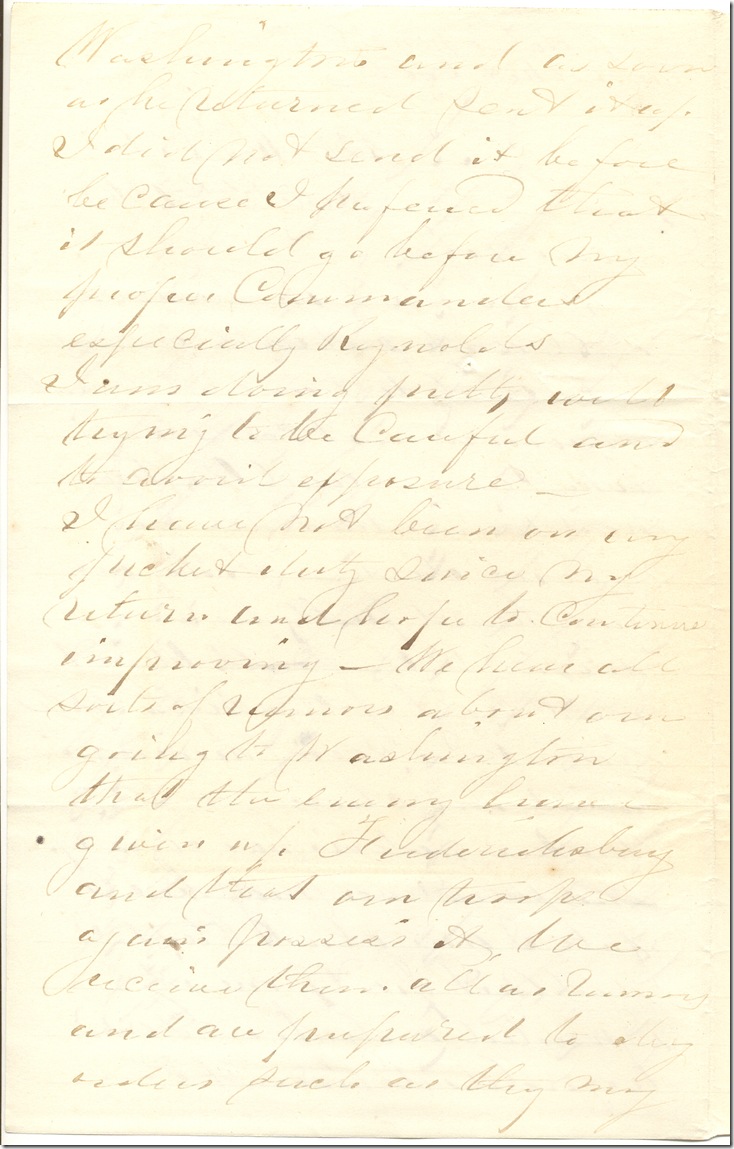 Washington and as soon
as he returned sent it up.
I did not send it before
because I prefered that
it should go before my
proper Commanders
especially Reynolds
I am doing pretty well
trying to be Careful and
to avoid exposure —
I have not been on any
picket duty since my
return and hope to Continue
improving — We hear all
sorts of rumors about our
going to Washington
that the enemy have
given up Fredericksburg
and that our troops
again possess it. We
receive them all as rumors
and are prepared to obey
orders such as they may